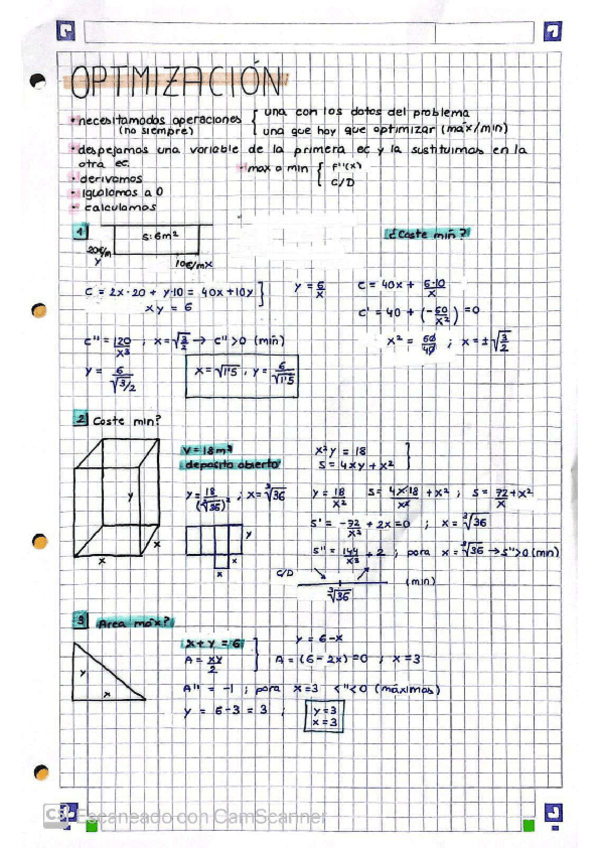 OPTMIZACIÓN
• necesitamodos operaciones { una con los datos del problema
(no siempre) una que hay que optimizar (máx/min)
• despejamos una variable de la primera ec y la sustituimos en la
otra ec.
• max o min { F''(x)
C/D
• derivamos
• igualamos a 0
• calculamos
1 S:6m² ¿Coste min?
20€/m
y
10€/m x
C = 2x·20 + y·10 = 40x+10y }
xy = 6
y = 6/x
C = 40x + 6·10/x
C' = 40 + (-60/x²) = 0
C'' = 120/x³ ; x = √3/2 → C''>0 (min)
x² = 60/40 ; x = ±√3/2
y = 6/√3/2
x = √1'5 , y = 6/√1'5
2 Coste min?
V = 18 m³
deposito abierto
x²y = 18
S = 4xy + x² }
y = 18/(∛36)² ; x = ∛36
y = 18/x² S = 4x·18/x² + x² ; S = 72/x + x²
S' = -72/x² + 2x = 0 ; x = ∛36
S'' = 144/x³ + 2 ; para x = ∛36 → S''>0 (min)
y
x
x
y
x
x
C/D (min)
∛36
3 Area máx?
x + y = 6
A = xy/2 }
y = 6-x
A = (6-2x) = 0 ; x = 3
y
x
A'' = -1 ; para x = 3 <''<0 (máximos)
y = 6-3 = 3 ;
y = 3
x = 3
CS Escaneado con CamScanner